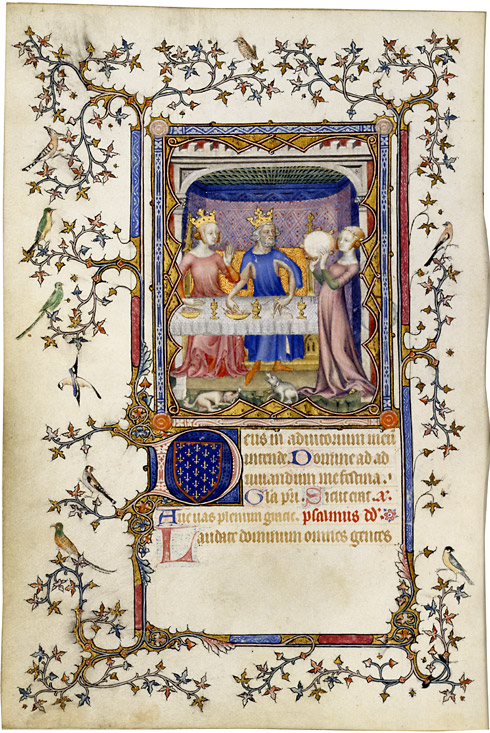 Deus in adiutorium meū
intende Domine ad ad
iuuandum me festina.
Gła pri. Sicut erat. a.
Aue uas plenum gracie. psalmus dd.
Laudate dominum omnes gentes